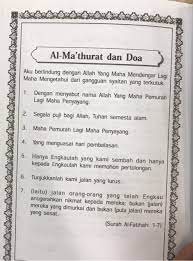 Al-Ma'thurat dan Doa
Aku berlindung dengan Allah Yang Maha Mendengar Lagi
Maha Mengetahui dari gangguan syaitan yang terkutuk.
1. Dengan menyebut nama Allah Yang Maha Pemurah
Lagi Maha Penyayang.
2. Segala puji bagi Allah, Tuhan semesta alam.
3. Maha Pemurah Lagi Maha Penyayang.
4. Yang menguasai hari pembalasan.
5. Hanya Engkaulah yang kami sembah dan hanya
kepada Engkaulah kami memohon pertolongan.
6. Tunjukkanlah kami jalan yang lurus.
7. (Iaitu) jalan orang-orang yang telah Engkau
anugerahkan nikmat kepada mereka; bukan (jalan)
mereka yang dimurkai dan bukan (pula jalan) mereka
yang sesat.
(Surah Al-Fatihah: 1-7)